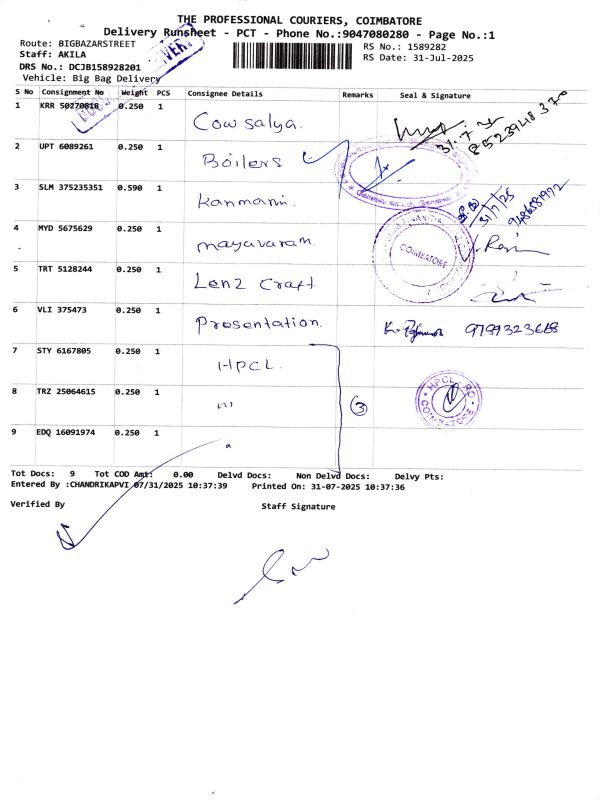 THE PROFESSIONAL COURIERS, COIMBATORE
Delivery Runsheet - PCT - Phone No.:9047080280 - Page No.:1
Route: BIGBAZARSTREET
Staff: AKILA
DRS No.: DCJB158928201
Vehicle: Big Bag Delivery
RS No.: 1589282
RS Date: 31-Jul-2025
S No Consignment No Weight PCS Consignee Details Remarks Seal & Signature
1 KRR 50270818 0.250 1 Cowsalya.
31.7.25
2 UPT 6089261 0.250 1 Boilers
3 SLM 375235351 0.590 1 Kanmani.
31/7/25
4 MYD 5675629 0.250 1 mayavaram.
COIMBATORE
5 TRT 5128244 0.250 1 Lenz Craft
6 VLI 375473 0.250 1 Presentation.
7 STY 6167805 0.250 1 HPCL.
8 TRZ 25064615 0.250 1 ,,, 3
HPCL RO
COIMBATORE
9 EDQ 16091974 0.250 1 "
Tot Docs: 9 Tot COD Amt: 0.00 Delvd Docs: Non Delvd Docs: Delvy Pts:
Entered By :CHANDRIKAPVI 07/31/2025 10:37:39 Printed On: 31-07-2025 10:37:36
Verified By Staff Signature